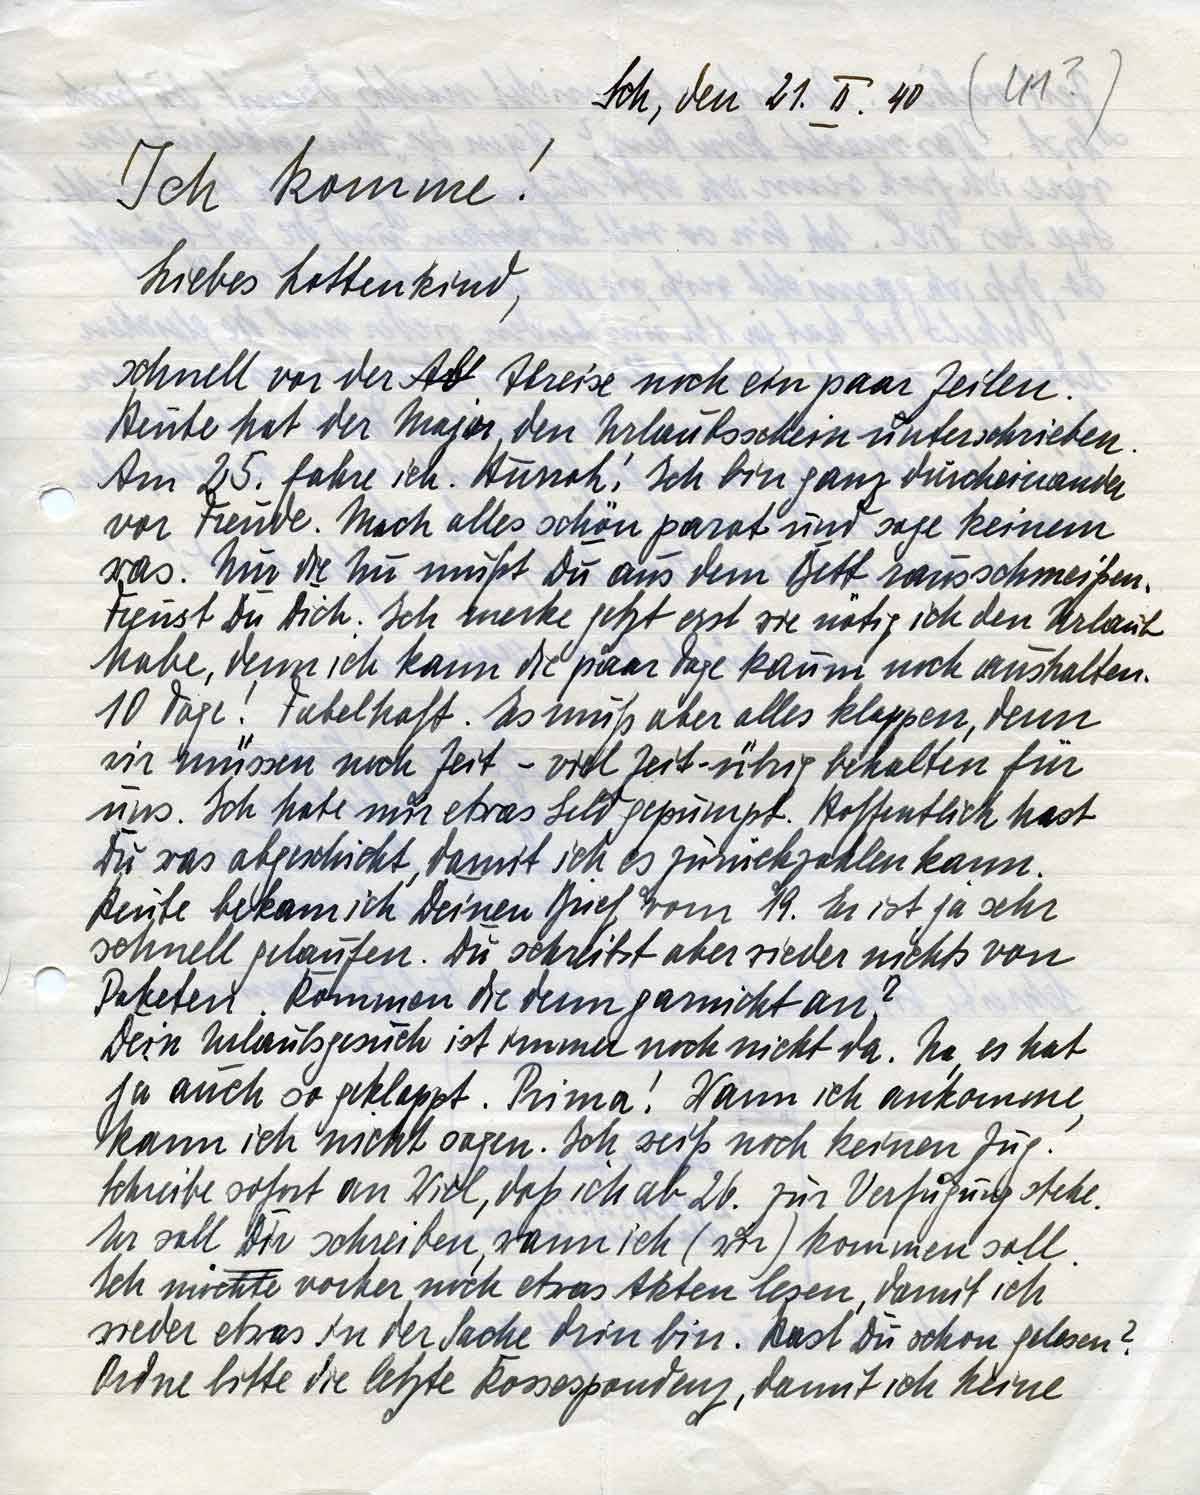 Sch, den 21. II. 40 (41?)
Ich komme!
Liebes Lottenkind,
schnell vor der Abreise noch ein paar Zeilen.
Heute hat der Major den Urlaubsschein unterschrieben.
Am 25. fahre ich. Hurrah! Ich bin ganz durcheinander
vor Freude. Mach alles schön parat und sage keinem
was. Nur die Nu mußt Du aus dem Bett rausschmeißen.
Freust Du Dich. Ich merke jetzt erst wie nötig ich den Urlaub
habe, denn ich kann die paar Tage kaum noch aushalten.
10 Tage! Fabelhaft. Es muß aber alles klappen, denn
wir müssen noch Zeit - viel Zeit - übrig behalten für
uns. Ich habe mir etwas Geld gepumpt. Hoffentlich hast
Du was abgeschickt, damit ich es zurückzahlen kann.
Heute bekam ich Deinen Brief vom 19. Er ist ja sehr
schnell gelaufen. Du schreibst aber wieder nichts von
Paketen. Kommen die denn garnicht an?
Dein Urlaubsgesuch ist immer noch nicht da. Na, es hat
ja auch so geklappt. Prima! Wann ich ankomme,
kann ich nicht sagen. Ich weiß noch keinen Zug.
Schreibe sofort an Wiel, daß ich ab 26. zur Verfügung stehe.
Er soll Dir schreiben, wann ich (wir) kommen soll.
Ich möchte vorher noch etwas Akten lesen, damit ich
wieder etwas in der Sache drin bin. Hast Du schon gelesen?
Ordne bitte die letzte Korrespondenz, damit ich keine